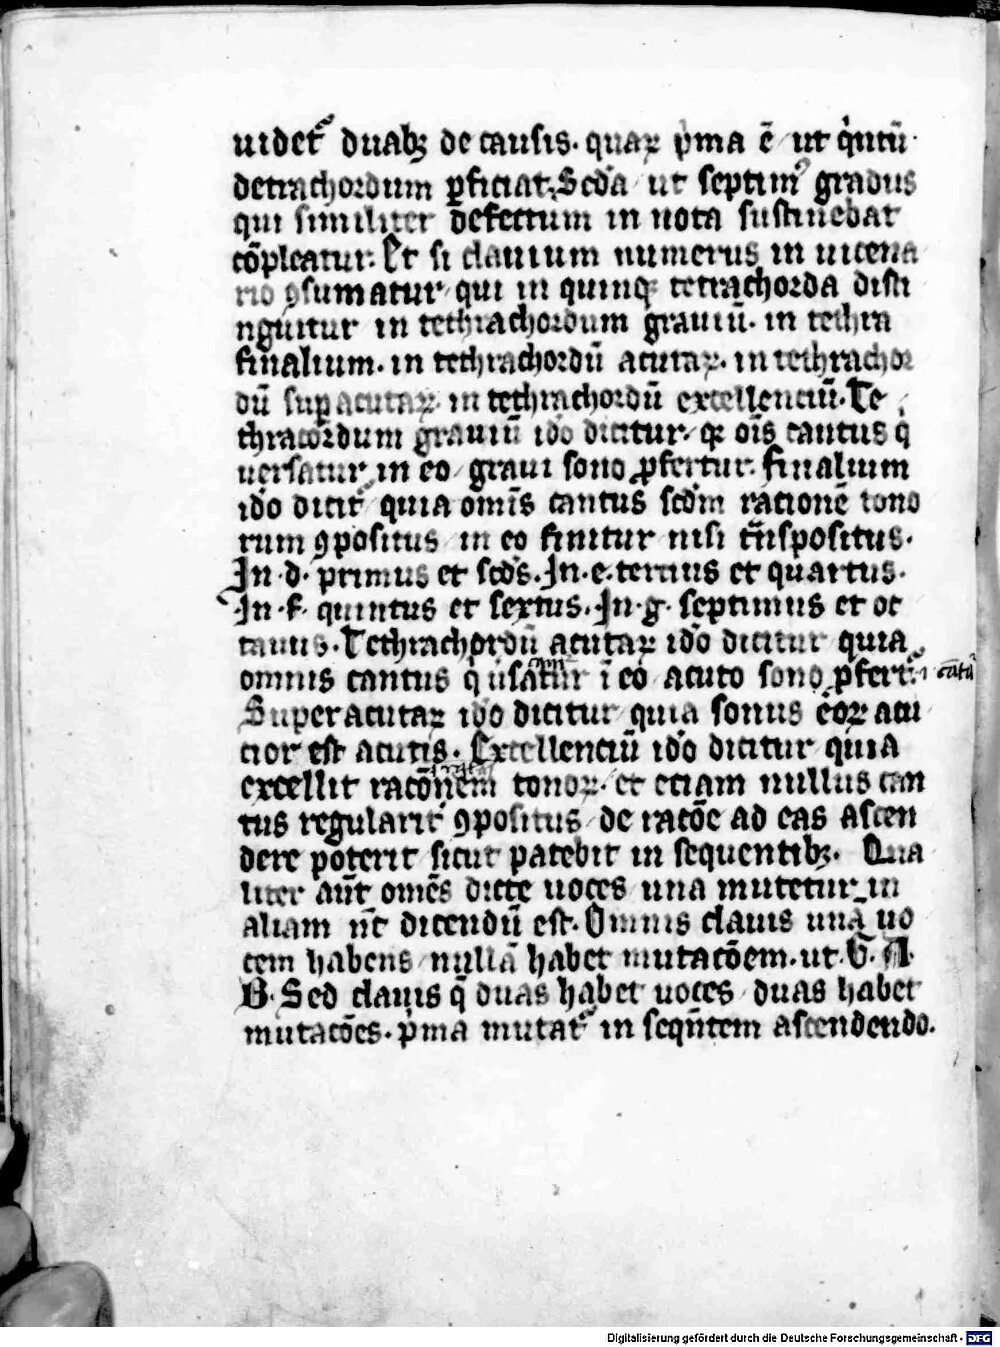 uidet᷑ duabꝫ de causis. quaꝝ p̍ma ē ut q̍ntū
detrachordum ꝑficiat. Scd̕a ut septim᷒ gradus
qui similiter defectum in nota sustinebat
cōpleatur. Et si clauium numerus in uicena
rio ꝯsumatur qui in quinqꝫ tetrachorda disti
nguitur in tethrachordum grauiū. in tethra
finalium. in tethrachordū acutaꝝ. in tethrachor
dū sup̱acutaꝝ. in tethrachordū excellenciū. Te
thracordum grauiū id̕o dicitur. qꝛ oīs cantus q̍
uersatur in eo graui sono ꝓfertur. finalium
id̕o dicit᷑ quia omīs cantus scd̕m rationē tono
rum ꝯpositus in eo finitur nisi tn̄spositus.
In .d. primus et scd̕s. In .e. tercius et quartus.
In .f. quintus et sextus. In .g. septimus et oc
tauus. Tethrachordū acutaꝝ id̕o dicitur quia
omnis cantus q̍ ī eo acuto sono ꝓfert᷑.
Superacutaꝝ id̕o dicitur quia sonus eoꝝ acu
cior est acutis. Excellenciū id̕o dicitur quia
excellit racōnem tonoꝝ. et eciam nullus can
tus regularit᷑ ꝯpositus de racōe ad eas ascen
dere poterit sicut patebit in sequentibꝫ. Qua
liter aūt omēs dicte uoces una mutetur in
aliam nc̄ dicendū est. Omnis clauis unā uo
cem habens nullā habet mutacōem. ut Γ. A.
B. Sed clauis q̄ duas habet uoces duas habet
mutacōes. p̍ma mutat᷑ in seqn̄tem ascendendo.
Digitalisierung gefördert durch die Deutsche Forschungsgemeinschaft - DFG